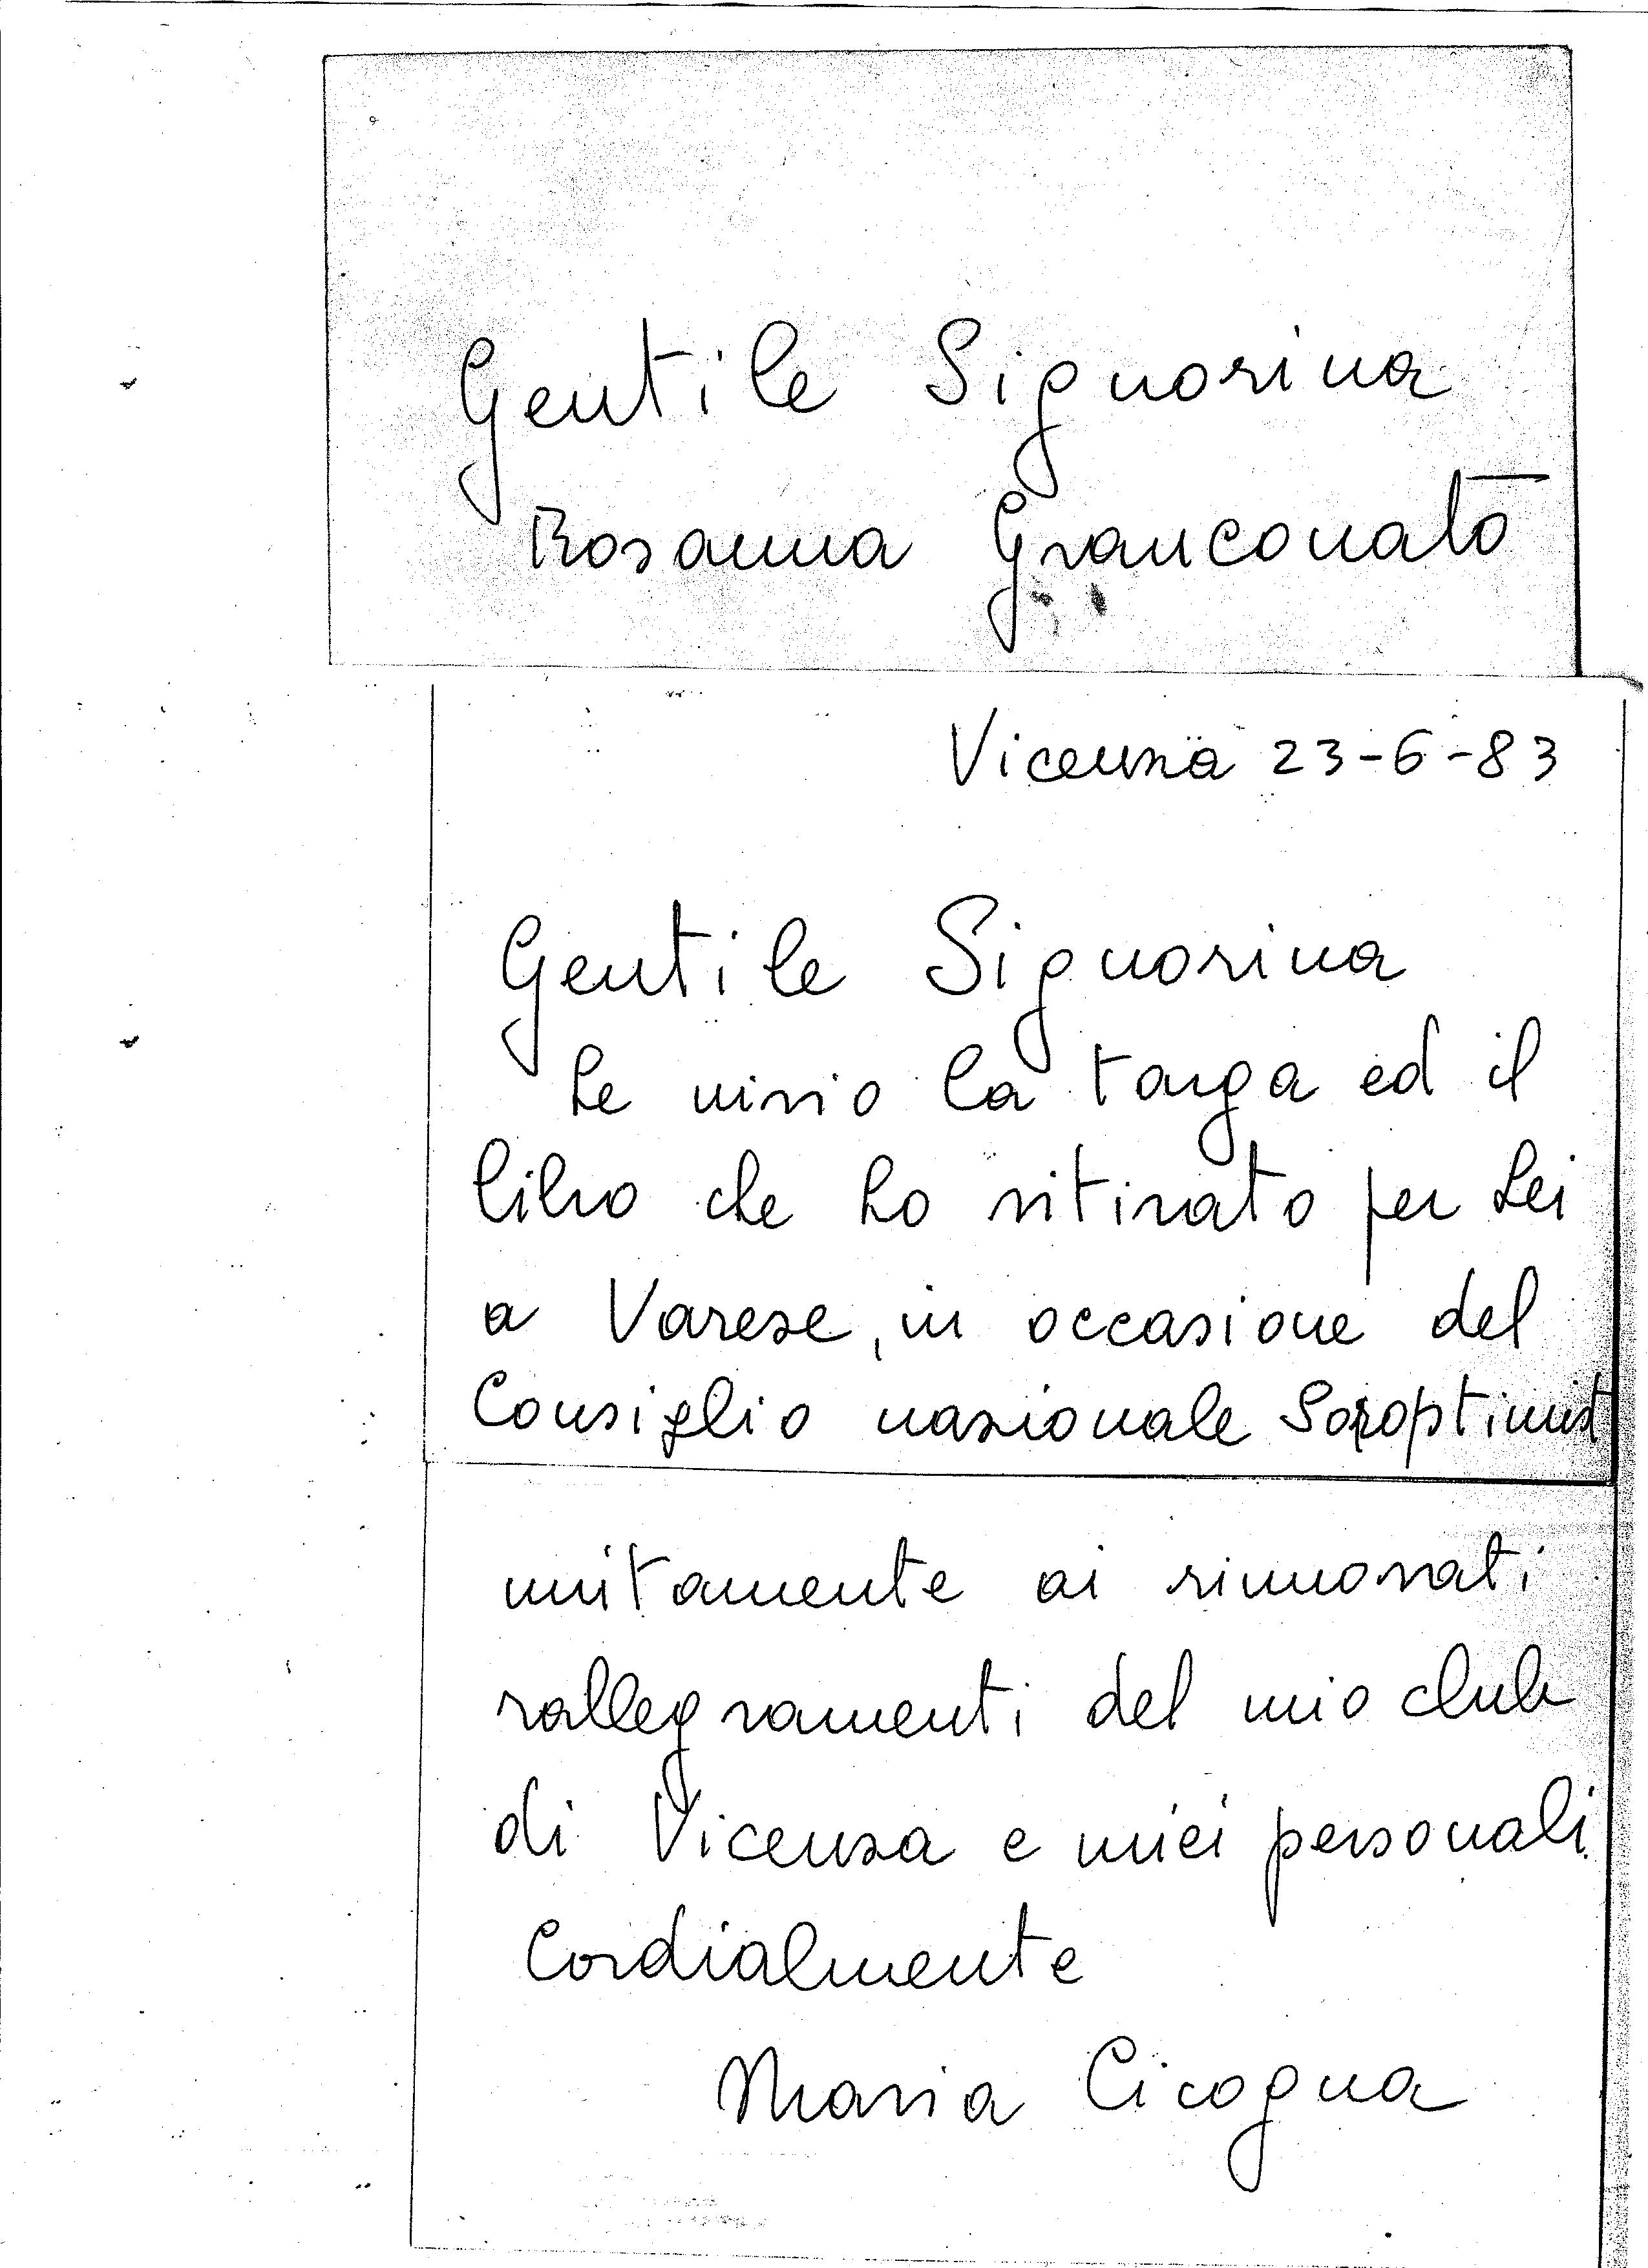 Gentile Signorina
Rosanna Granconato
Vicenza 23-6-83
Gentile Signorina
Le invio la targa ed il
libro che ho ritirato per Lei
a Varese, in occasione del
Consiglio nazionale Soroptimist
unitamente ai rinnovati
rallegramenti del mio club
di Vicenza e miei personali
Cordialmente
Maria Cicogna